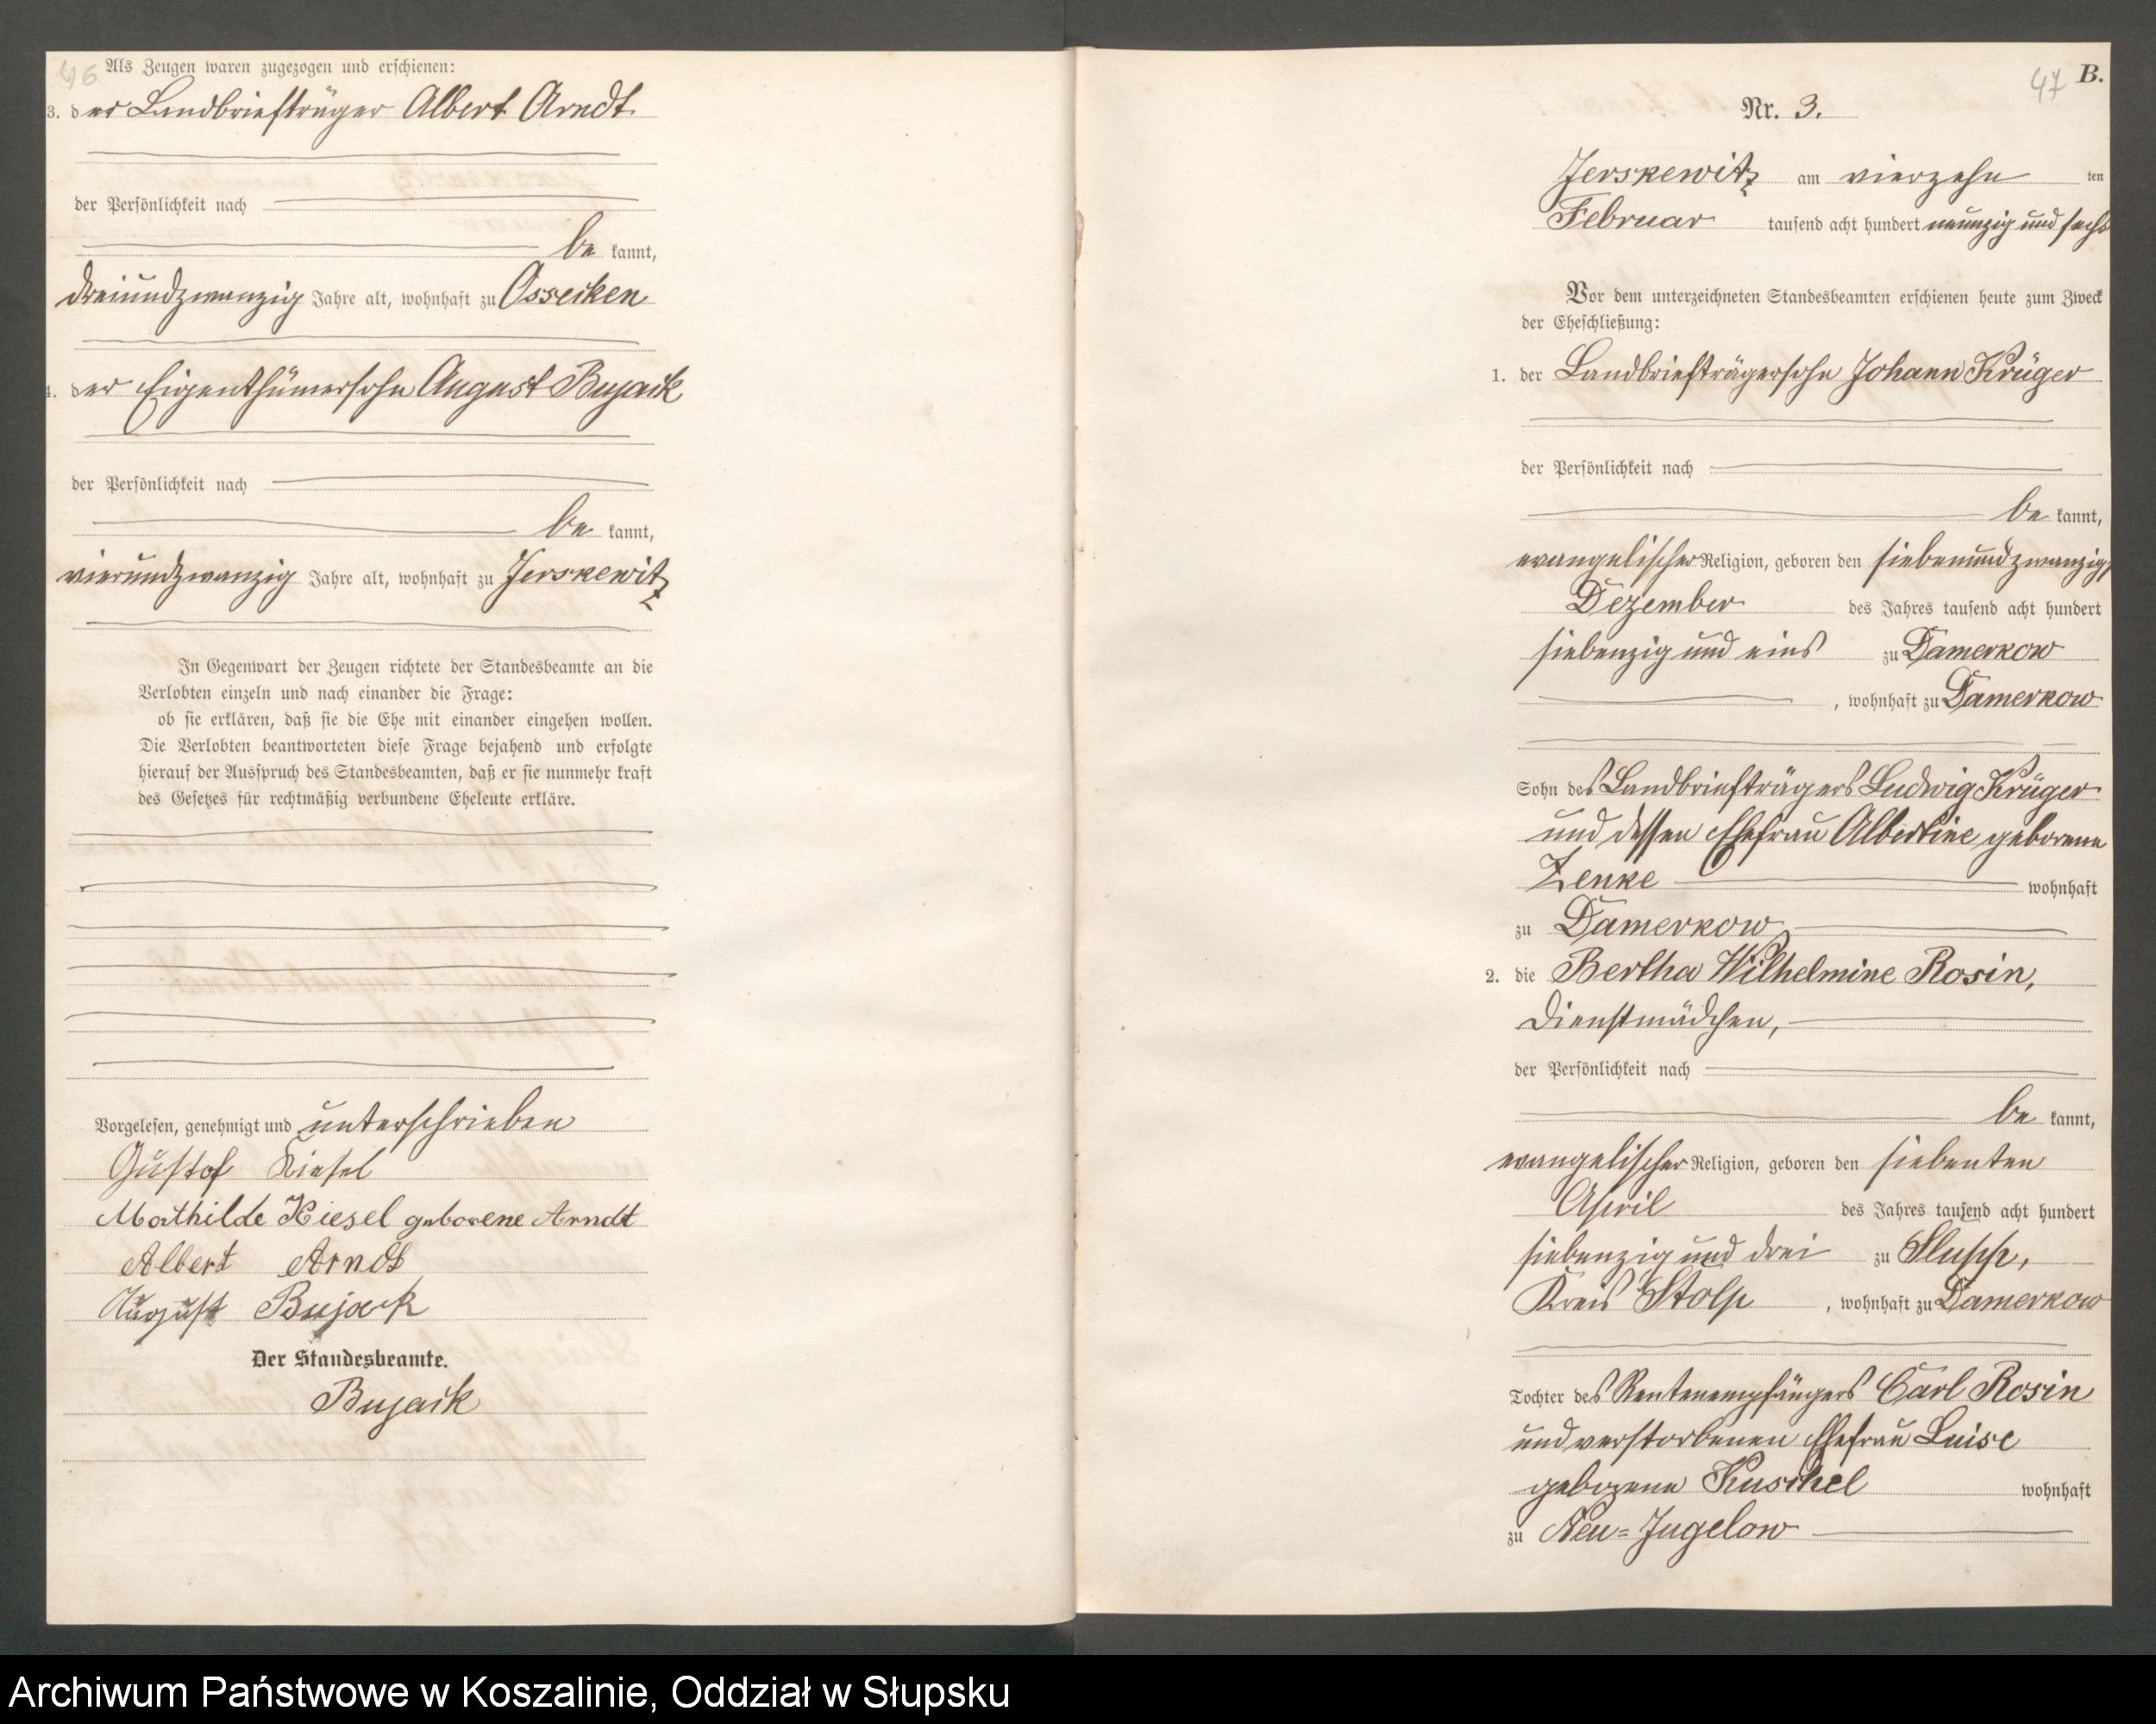 46
Als Zeugen waren zugezogen und erschienen:
3. der Landbriefträger Albert Arndt
der Persönlichkeit nach
be kannt,
dreiundzwanzig Jahre alt, wohnhaft zu Ossecken
4. der Eigenthümersohn August Bujack
der Persönlichkeit nach
be kannt,
vierundzwanzig Jahre alt, wohnhaft zu Jerskewitz
In Gegenwart der Zeugen richtete der Standesbeamte an die
Verlobten einzeln und nach einander die Frage:
ob sie erklären, daß sie die Ehe mit einander eingehen wollen.
Die Verlobten beantworteten diese Frage bejahend und erfolgte
hierauf der Ausspruch des Standesbeamten, daß er sie nunmehr kraft
des Gesetzes für rechtmäßig verbundene Eheleute erkläre.
Vorgelesen, genehmigt und unterschrieben
Gustof Kiesel
Mathilde Kiesel geborene Arndt
Albert Arndt
August Bujack
Der Standesbeamte.
Bujack
47 B.
Nr. 3.
Jerskewitz am vierzehn ten
Februar tausend acht hundert neunzig und sechs
Vor dem unterzeichneten Standesbeamten erschienen heute zum Zweck
der Eheschließung:
1. der Landbriefträgersohn Johann Krüger
der Persönlichkeit nach
be kannt,
evangelischer Religion, geboren den siebenundzwanzig
Dezember des Jahres tausend acht hundert
siebenzig und eins zu Damerkow
, wohnhaft zu Damerkow
Sohn des Landbriefträgers Ludwig Krüger
und dessen Ehefrau Albertine geborene
Zenke wohnhaft
zu Damerkow
2. die Bertha Wilhelmine Rosin,
Dienstmädchen,
der Persönlichkeit nach
be kannt,
evangelischer Religion, geboren den siebenten
April des Jahres tausend acht hundert
siebenzig und drei zu Slupp,
Kreis Stolp , wohnhaft zu Damerkow
Tochter des Rentenempfängers Carl Rosin
und verstorbenen Ehefrau Luise
geborene Kuschel wohnhaft
zu Neu-Jugelow
Archiwum Państwowe w Koszalinie, Oddział w Słupsku